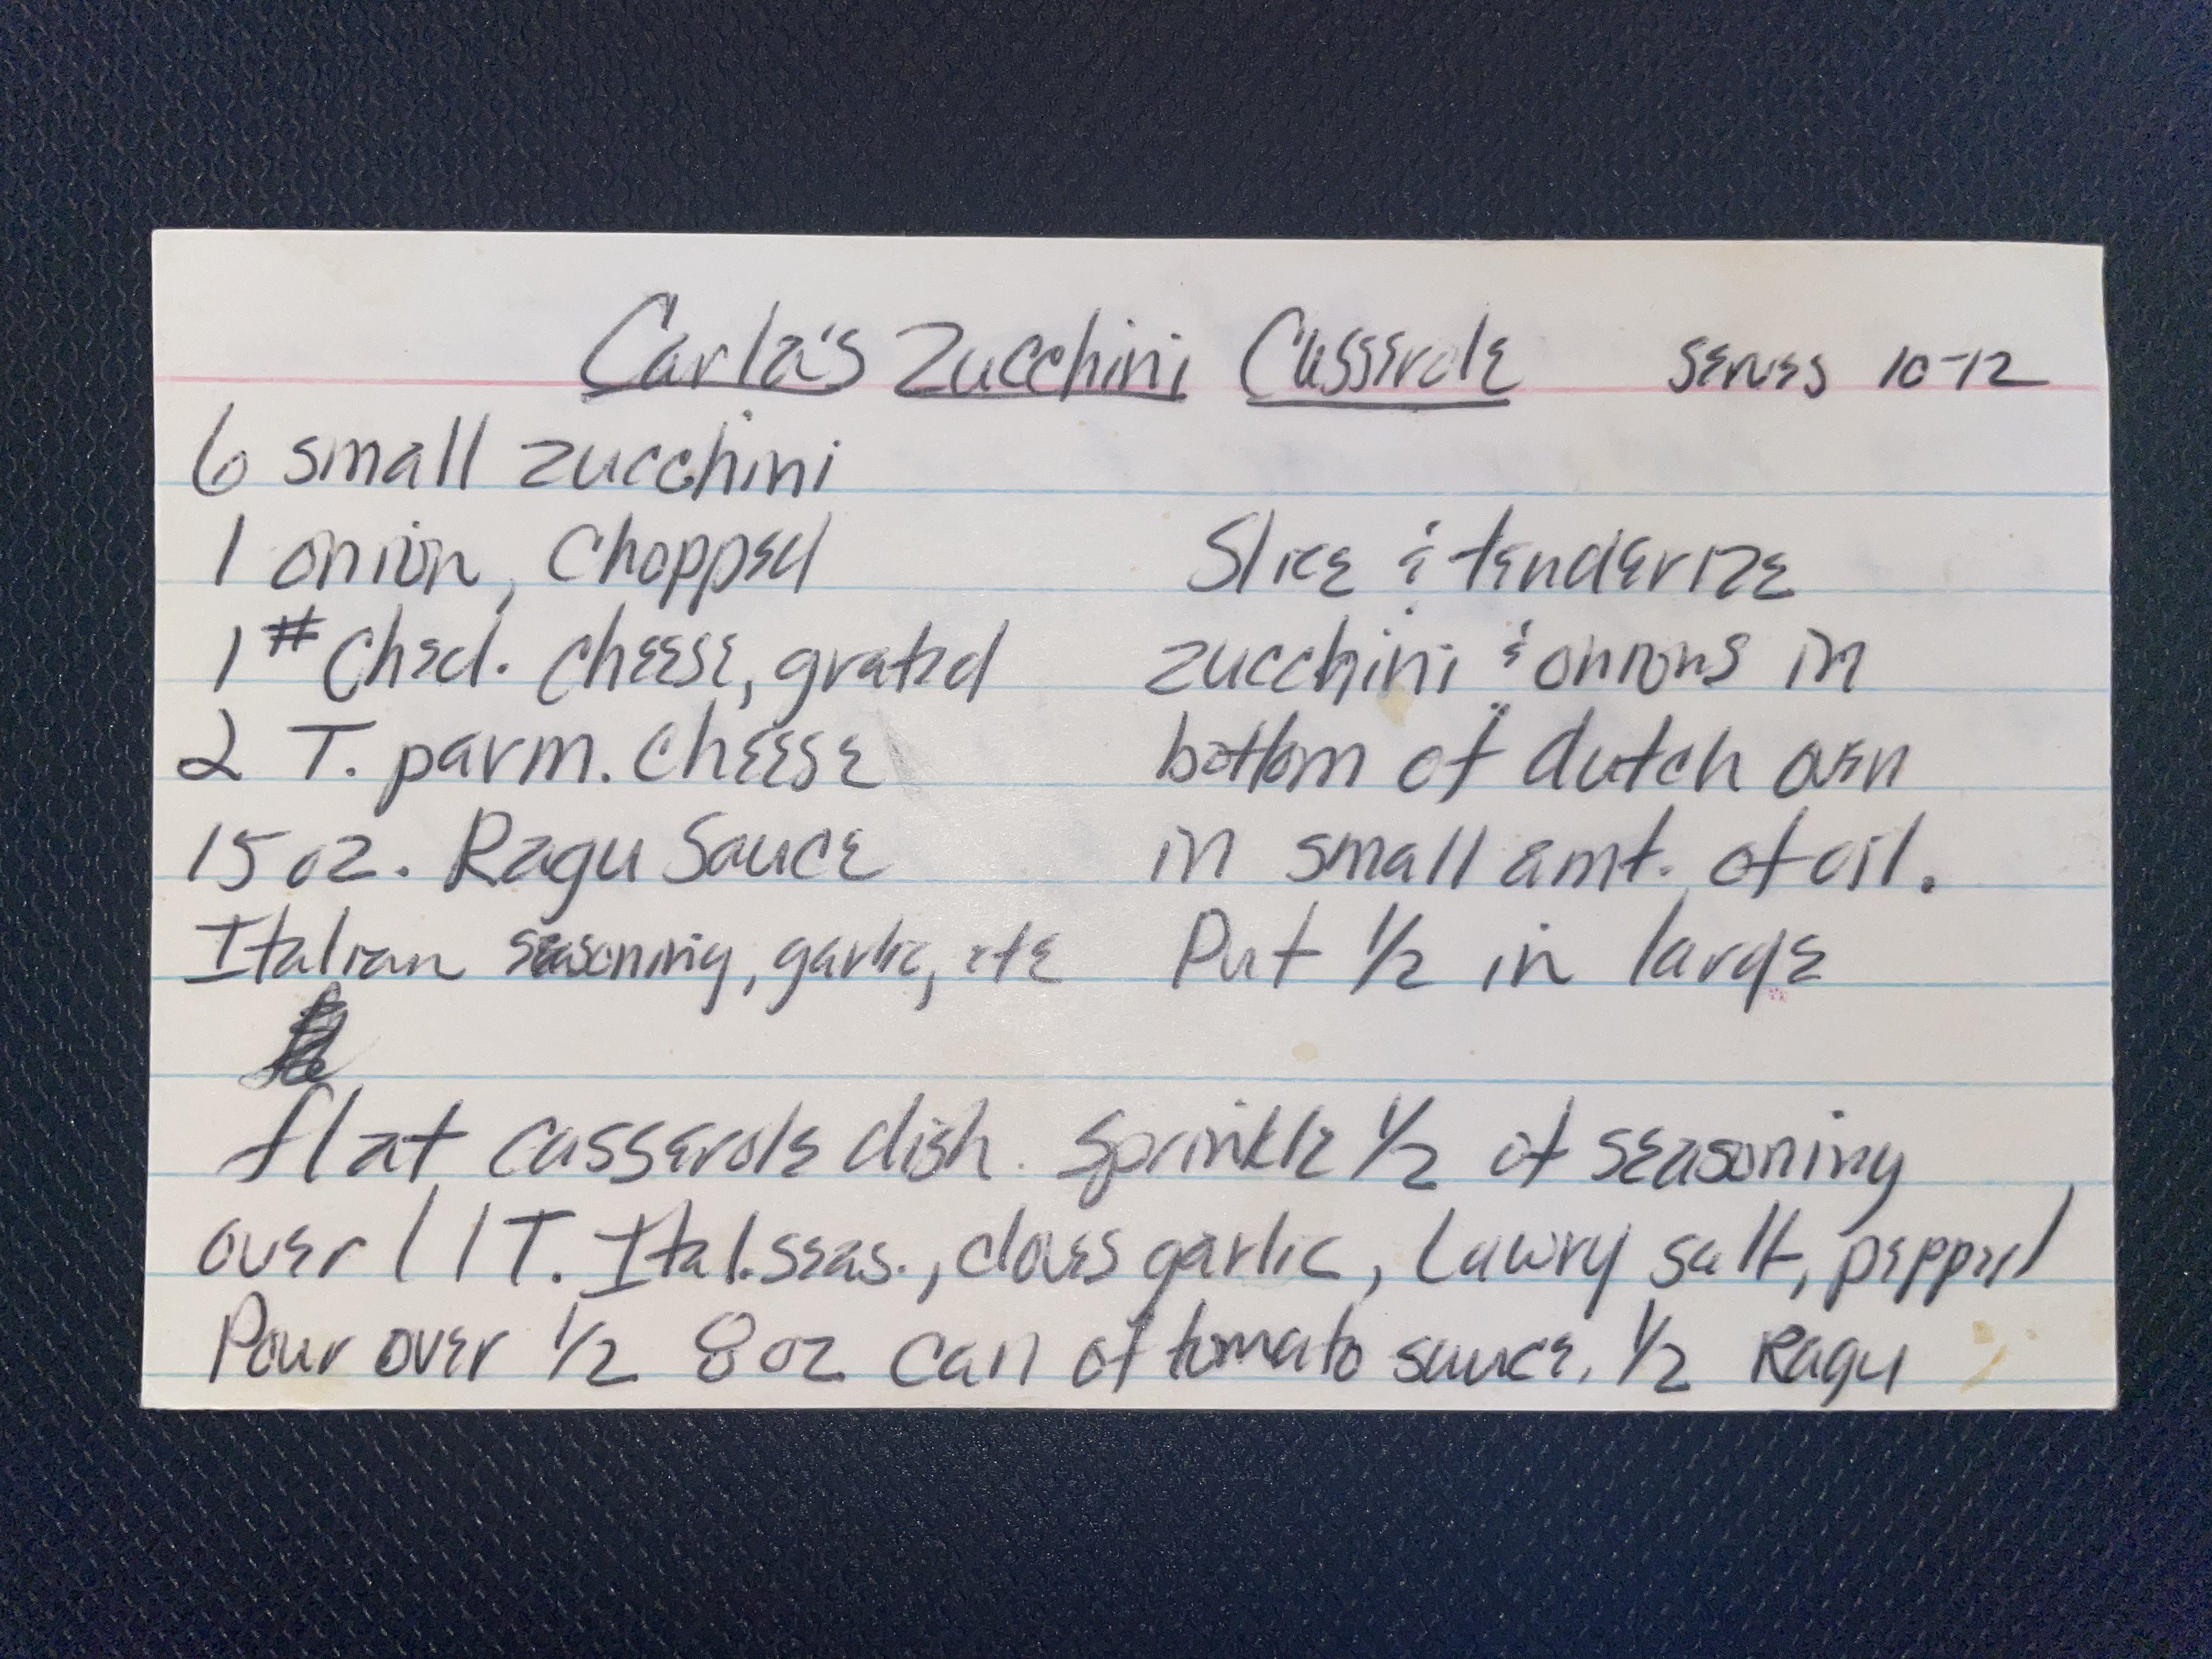 Carla's Zucchini Casserole serves 10-12
6 small zucchini
1 onion, chopped
1# Ched. cheese, grated
2 T. parm. cheese
15 oz. Ragu Sauce
Italian seasoning, garlic, etc
Slice & tenderize
zucchini & onions in
bottom of dutch oven
in small amt. of oil.
Put 1/2 in large
flat casserole dish. Sprinkle 1/2 of seasoning
over ( 1 T. Ital. seas., cloves garlic, Lawry salt, pepper)
Pour over 1/2 8 oz can of tomato sauce, 1/2 Ragu